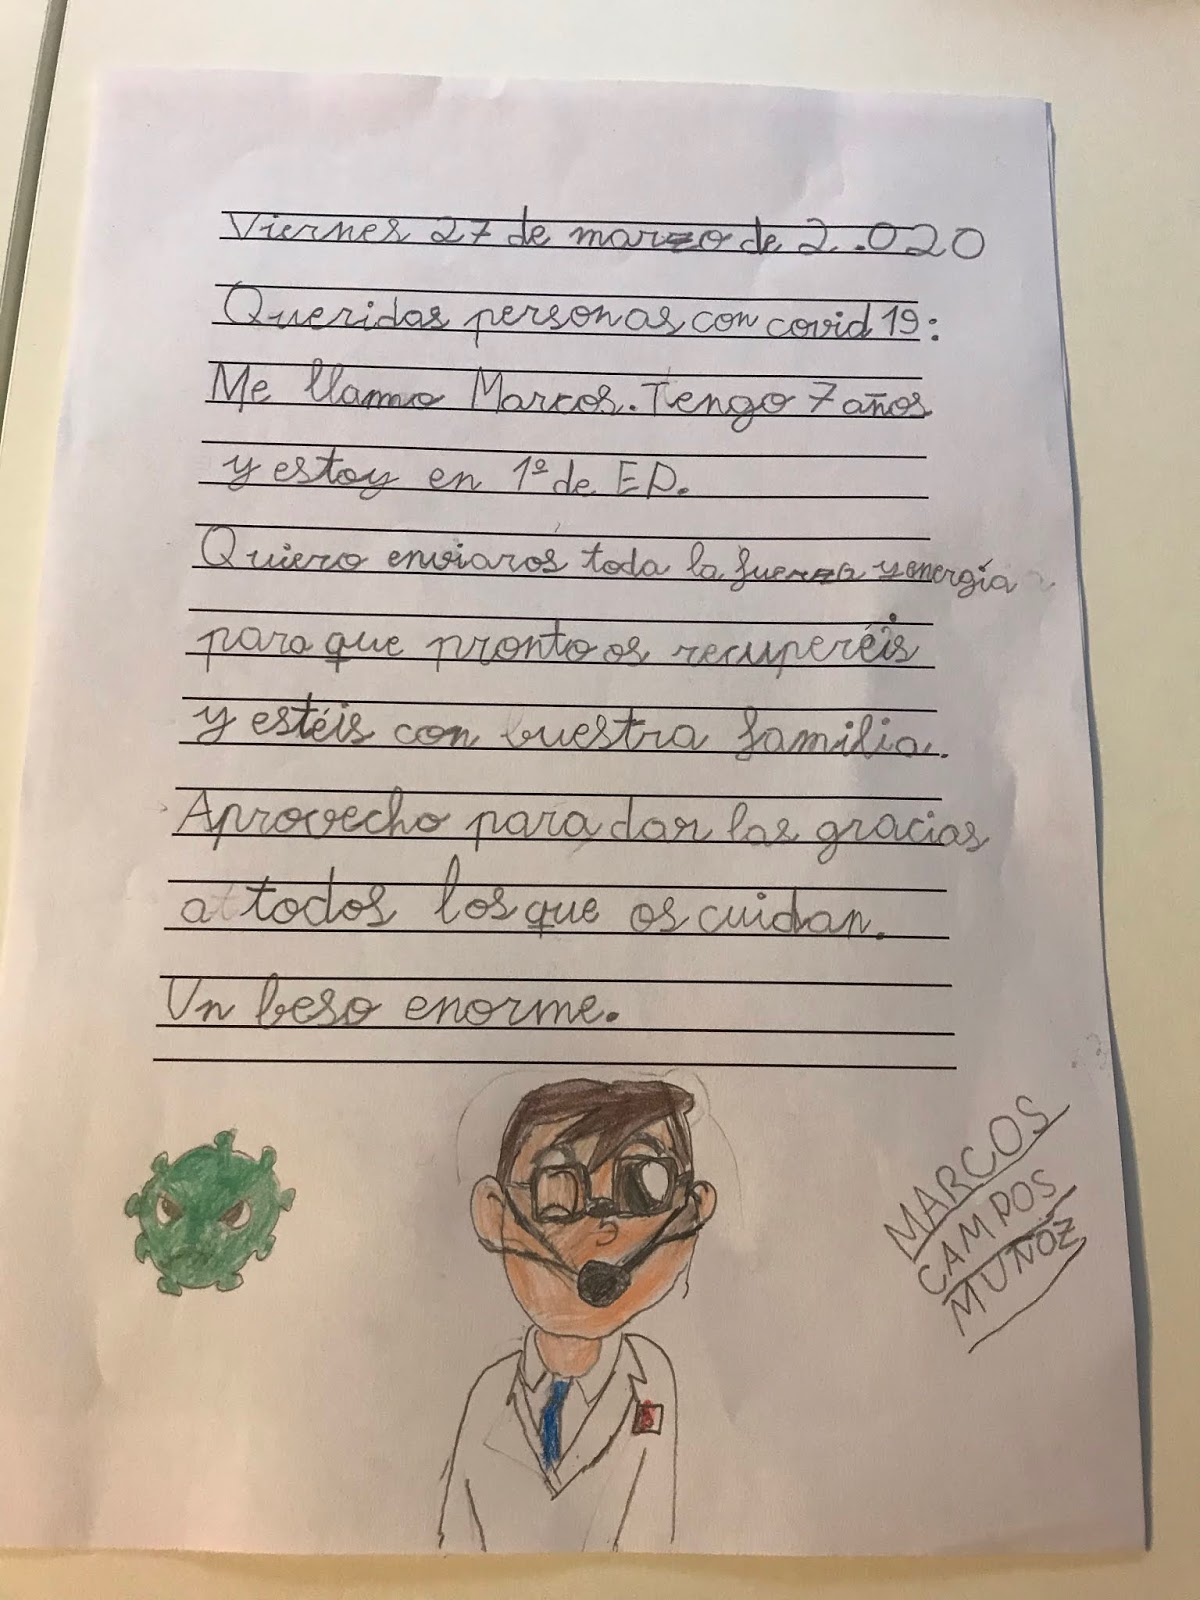 Viernes 27 de marzo de 2.020
Queridas personas con covid 19:
Me llamo Marcos. Tengo 7 años
y estoy en 1º de EP.
Quiero enviaros toda la fuerza y energía
para que pronto os recuperéis
y estéis con buestra familia.
Aprovecho para dar las gracias
a todos los que os cuidan.
Un beso enorme.
MARCOS
CAMPOS
MUÑOZ